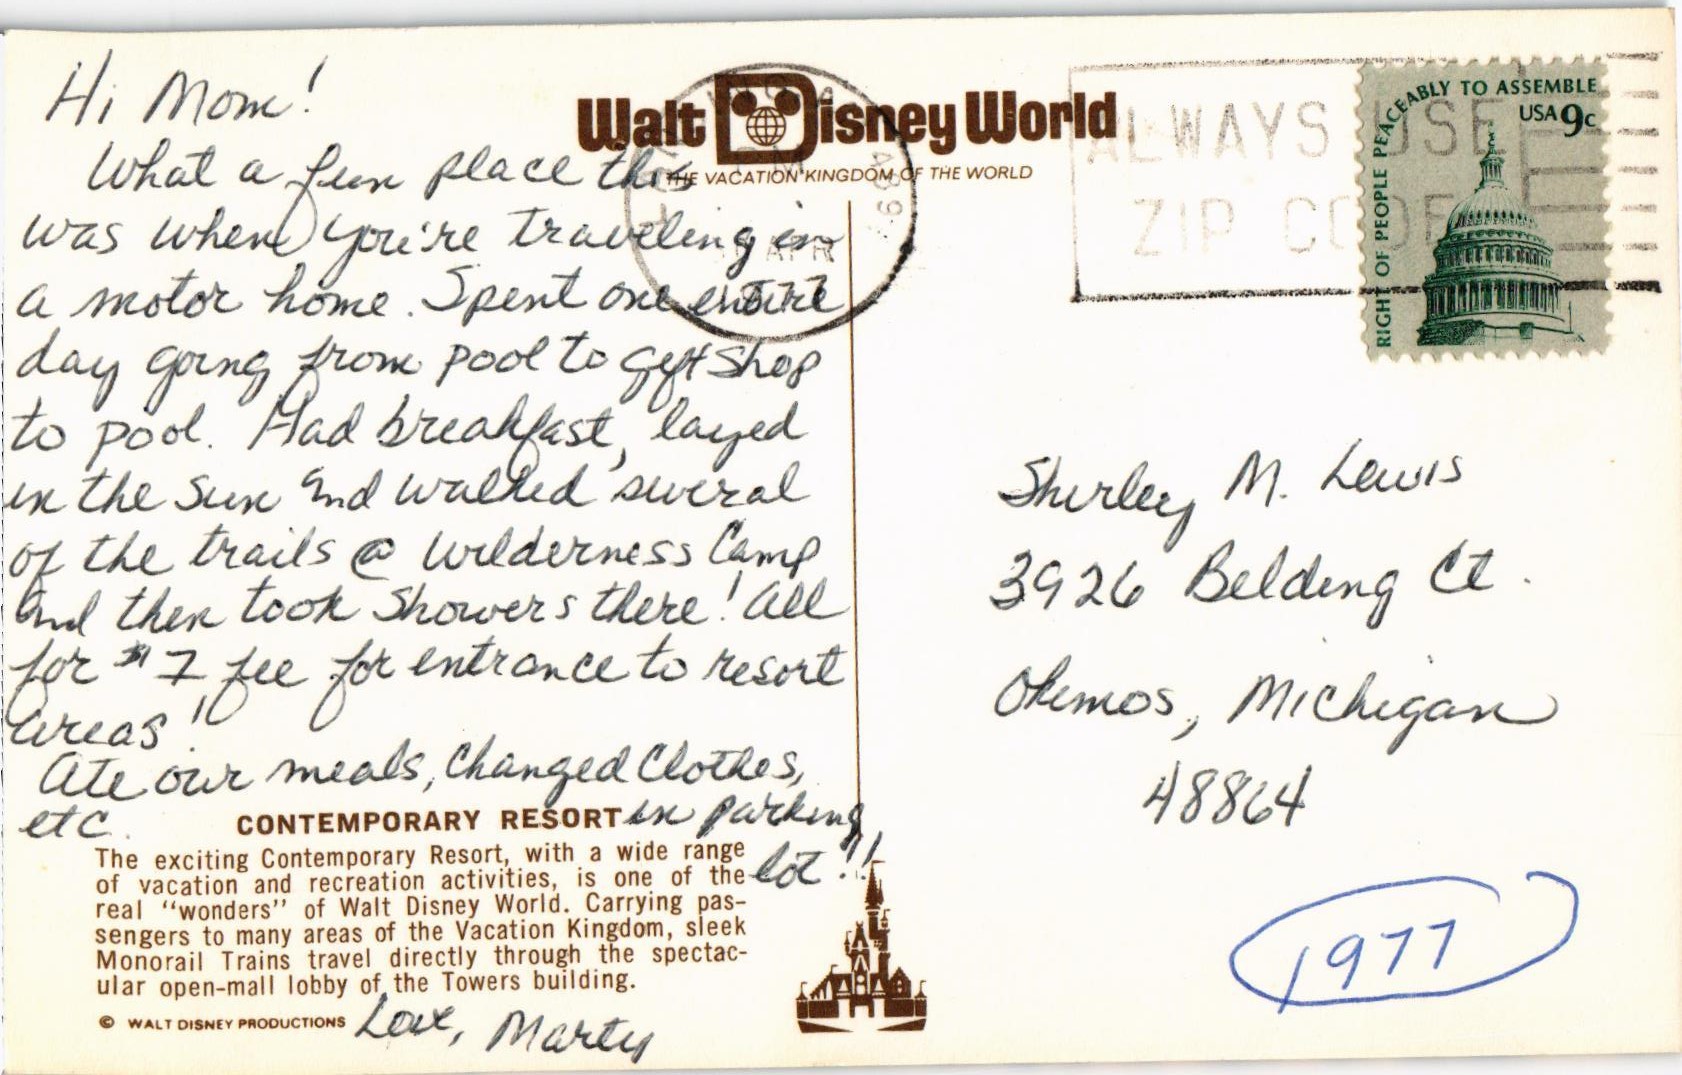 Hi Mom!
What a fun place this
was when you're traveling in
a motor home. Spent one entire
day going from pool to gift shop
to pool. Had breakfast, layed
in the sun and walked several
of the trails @ Wilderness Camp
and then took showers there! All
for $7 fee for entrance to resort
areas!
Ate our meals, changed clothes,
etc. in parking
lot!!
Love, Marty
Walt Disney World
THE VACATION KINGDOM OF THE WORLD
CONTEMPORARY RESORT
The exciting Contemporary Resort, with a wide range
of vacation and recreation activities, is one of the
real “wonders” of Walt Disney World. Carrying pas-
sengers to many areas of the Vacation Kingdom, sleek
Monorail Trains travel directly through the spectac-
ular open-mall lobby of the Towers building.
© WALT DISNEY PRODUCTIONS
APR
489
ALWAYS USE
ZIP CODE
RIGHT OF PEOPLE PEACEABLY TO ASSEMBLE
USA 9c
Shirley M. Lewis
3926 Belding Ct.
Okemos, Michigan
48864
1977